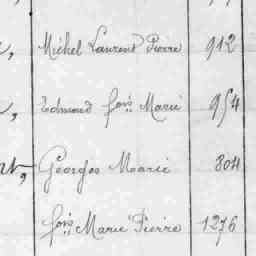 Michel Laurent Pierre 912
Edmond fois Marie 954
Georges Marie 804
fois Marie Pierre 1276